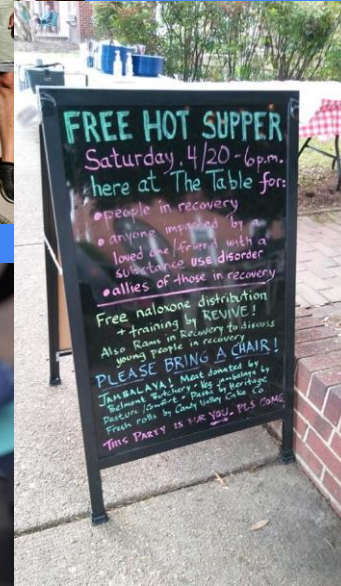 FREE HOT SUPPER
Saturday, 4/20 - 6p.m.
here at The Table for:
• people in recovery
• anyone impacted by a
loved one/friend with a
substance use disorder
• allies of those in recovery
Free naloxone distribution
+ training by REVIVE!
Also Rams in Recovery to discuss
young people in recovery
PLEASE BRING A CHAIR!
JAMBALAYA! Meat donated by
Belmont Butchery. Veg jambalaya by
Pasture/Comfort. Pasta by Heritage
Fresh rolls by Candy Valley Cake Co
THIS PARTY IS FOR YOU. PLS COME